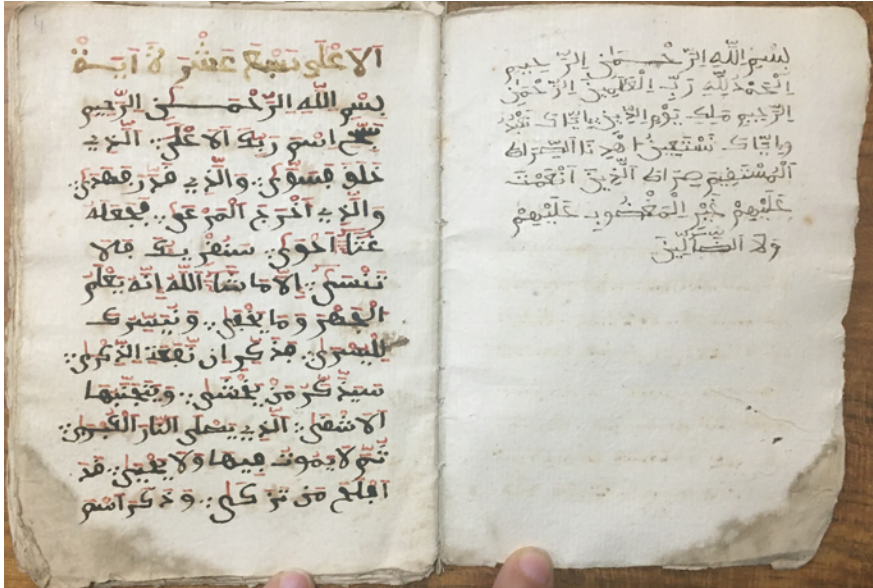 بِسْمِ اللَّهِ الرَّحْمَٰنِ الرَّحِيمِ
الْحَمْدُ لِلَّهِ رَبِّ الْعَٰلَمِينَ الرَّحْمَٰنِ
الرَّحِيمِ مَلِكِ يَوْمِ الدِّينِ إِيَّاكَ نَعْبُدُ
وَإِيَّاكَ نَسْتَعِينُ اهْدِنَا الصِّرَاطَ
الْمُسْتَقِيمَ صِرَاطَ الَّذِينَ أَنْعَمْتَ
عَلَيْهِمْ غَيْرِ الْمَغْضُوبِ عَلَيْهِمْ
وَلَا الضَّآلِّينَ
الَاعْلَى تِسْعَ عَشْرَةَ ءَايَةً
بِسْمِ اللَّهِ الرَّحْمَٰنِ الرَّحِيمِ
سَبِّحِ اسْمَ رَبِّكَ الَاعْلَى الَّذِي
خَلَقَ فَسَوَّىٰ وَالَّذِي قَدَّرَ فَهَدَىٰ
وَالَّذِي أَخْرَجَ الْمَرْعَىٰ فَجَعَلَهُ
غُثَاءً أَحْوَىٰ سَنُقْرِئُكَ فَلَا
تَنْسَىٰ إِلَّا مَا شَاءَ اللَّهُ إِنَّهُ يَعْلَمُ
الْجَهْرَ وَمَا يَخْفَىٰ وَنُيَسِّرُكَ
لِلْيُسْرَىٰ فَذَكِّرْ إِن نَّفَعَتِ الذِّكْرَىٰ
سَيَذَّكَّرُ مَنْ يَخْشَىٰ وَيَتَجَنَّبُهَا
الَاشْقَى الَّذِي يَصْلَى النَّارَ الْكُبْرَىٰ
ثُمَّ لَا يَمُوتُ فِيهَا وَلَا يَحْيَىٰ قَدْ
أَفْلَحَ مَنْ تَزَكَّىٰ وَذَكَرَ اسْمَ